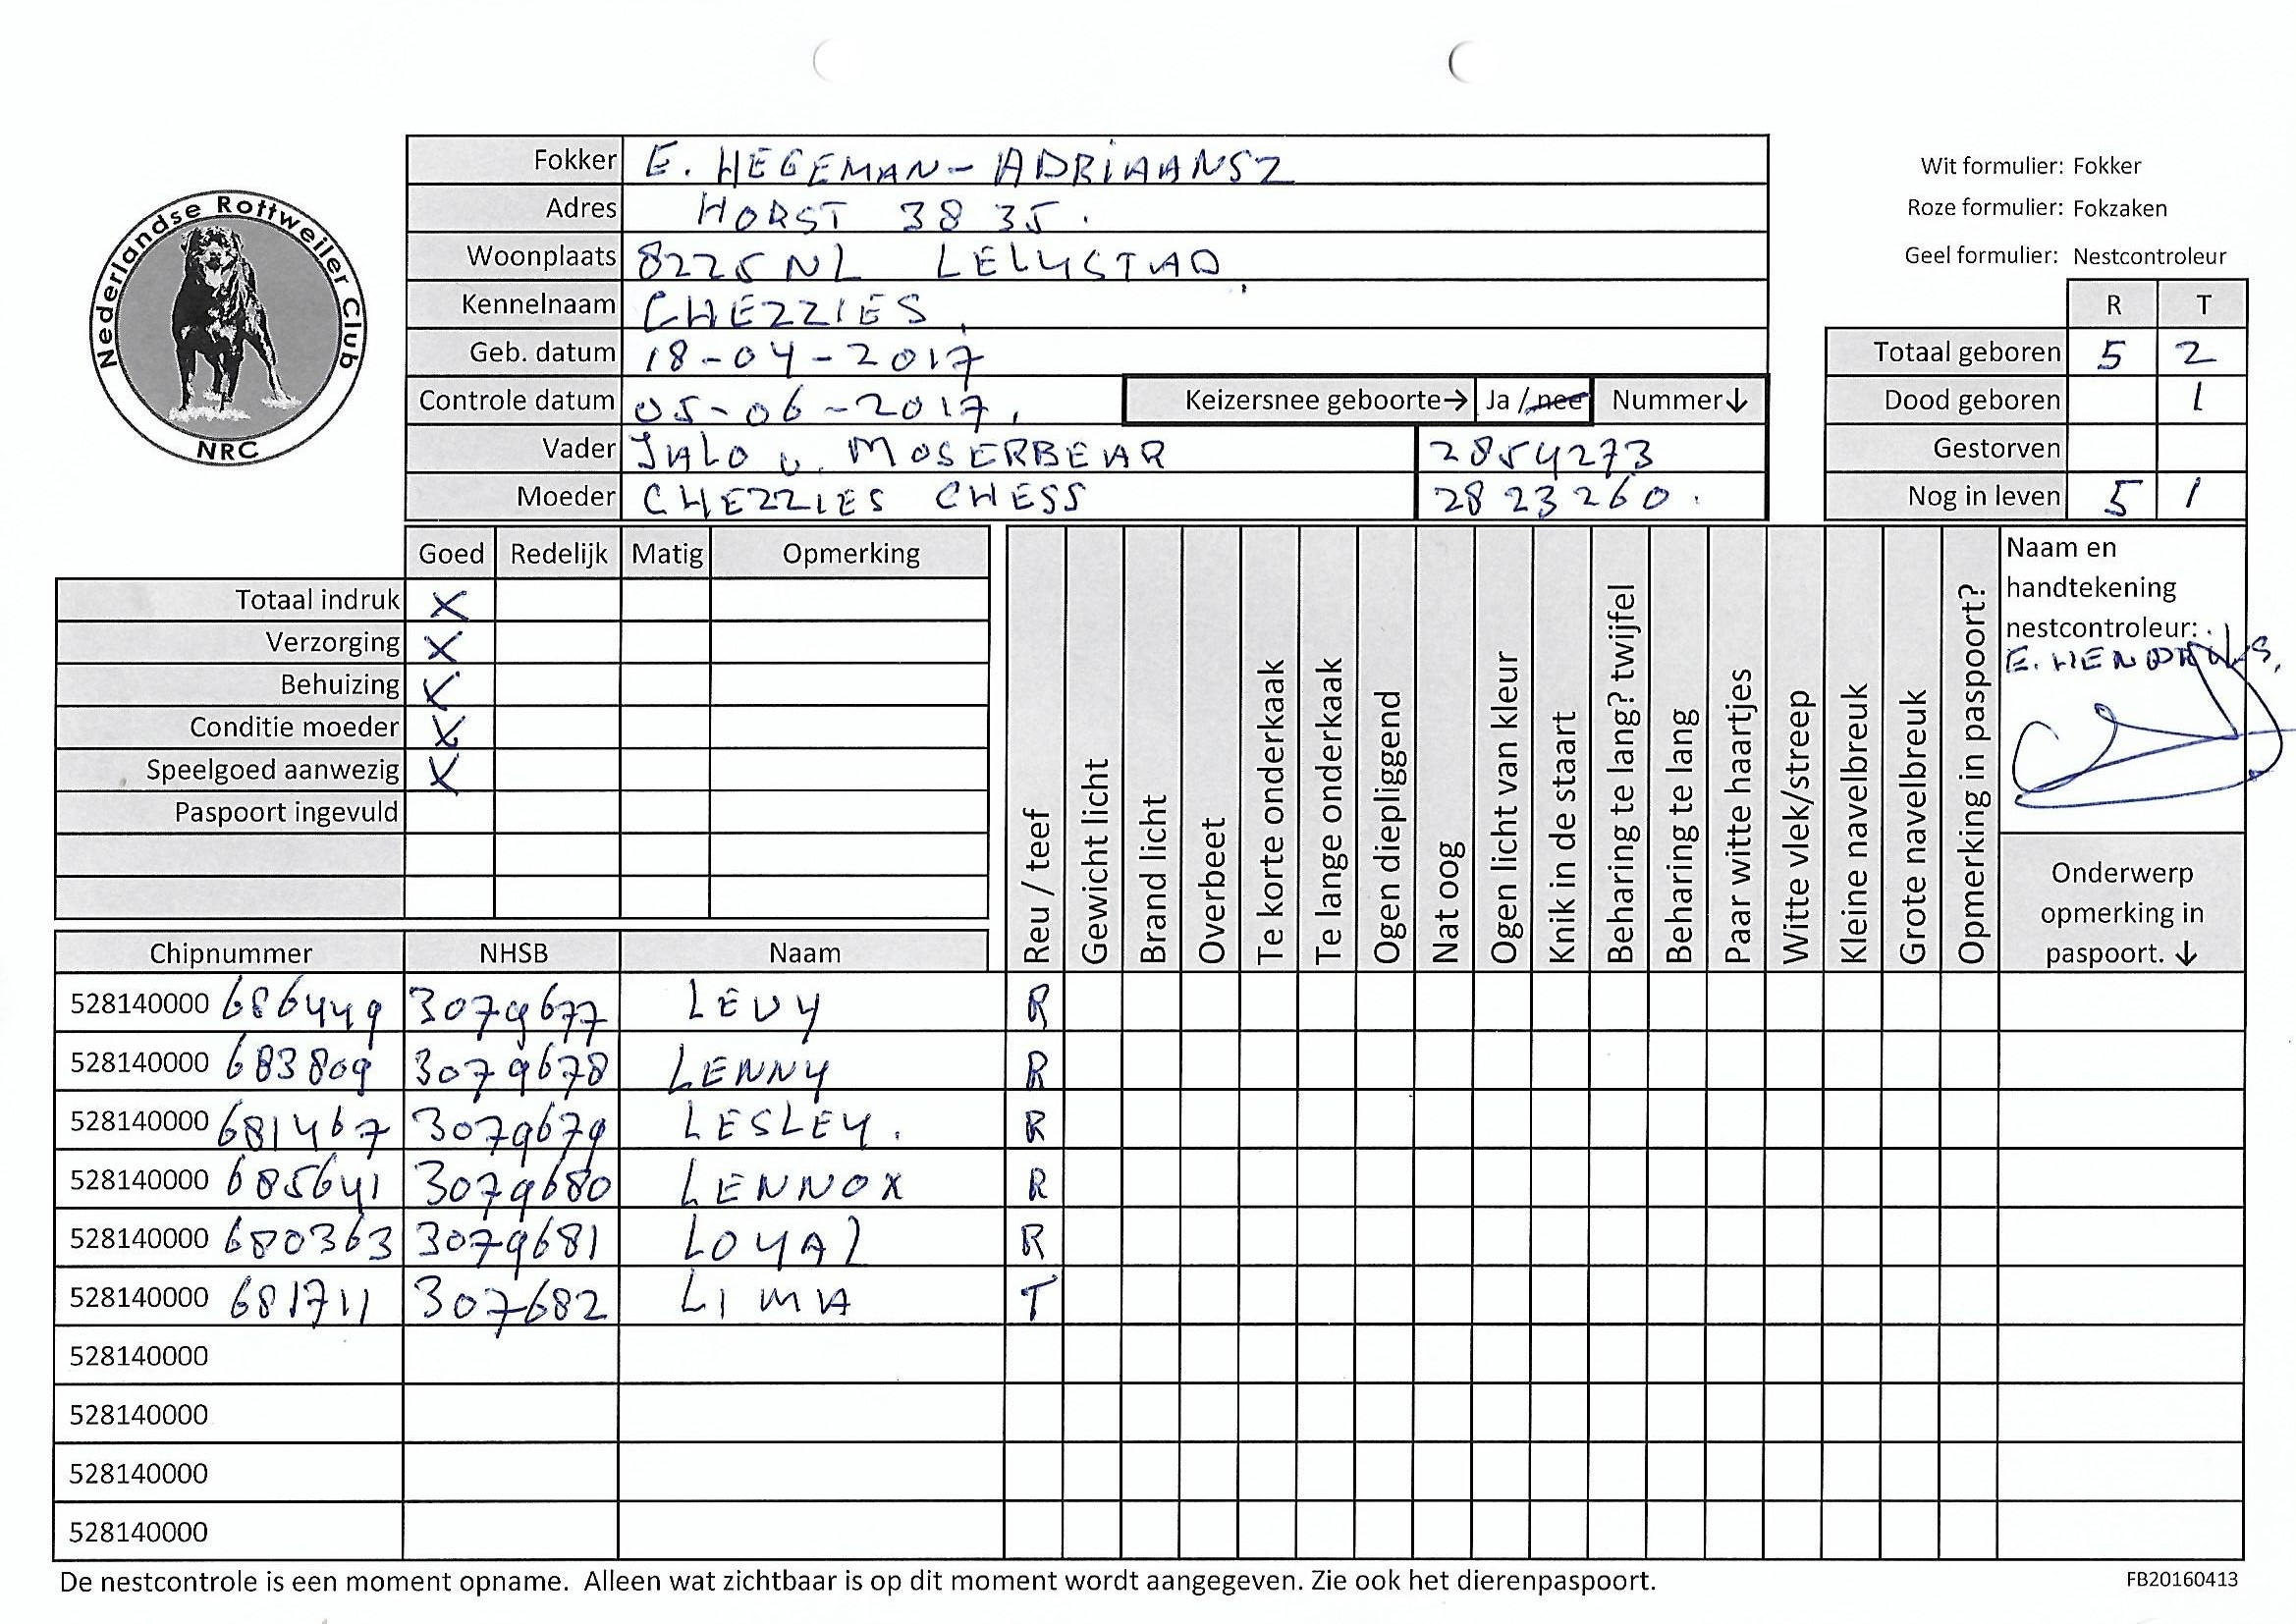 Nederlandse Rottweiler Club
NRC
Fokker E. HEGEMAN-ADRIAANSZ
Adres HORST 38 35.
Woonplaats 8225 NL LELYSTAD
Kennelnaam CHEZZIES
Geb. datum 18-04-2017
Controle datum 05-06-2017, Keizersnee geboorte→ Ja / nee Nummer↓
Vader JALO v. MOSERBEAR 2854273
Moeder CHEZZIES CHESS 2823260.
Wit formulier: Fokker
Roze formulier: Fokzaken
Geel formulier: Nestcontroleur
R T
Totaal geboren 5 2
Dood geboren 1
Gestorven
Nog in leven 5 1
Goed Redelijk Matig Opmerking
Totaal indruk X
Verzorging X
Behuizing X
Conditie moeder X
Speelgoed aanwezig X
Paspoort ingevuld
Reu / teef
Gewicht licht
Brand licht
Overbeet
Te korte onderkaak
Te lange onderkaak
Ogen diepliggend
Nat oog
Ogen licht van kleur
Knik in de staart
Beharing te lang? twijfel
Beharing te lang
Paar witte haartjes
Witte vlek/streep
Kleine navelbreuk
Grote navelbreuk
Opmerking in paspoort?
Naam en
handtekening
nestcontroleur:
E. HENDRIKS.
Onderwerp
opmerking in
paspoort. ↓
Chipnummer NHSB Naam
528140000 686449 3079677 LEVY R
528140000 683809 3079678 LENNY R
528140000 681467 3079679 LESLEY. R
528140000 685641 3079680 LENNOX R
528140000 680363 3079681 LOYAL R
528140000 681711 307682 LIMA T
528140000
528140000
528140000
528140000
De nestcontrole is een moment opname. Alleen wat zichtbaar is op dit moment wordt aangegeven. Zie ook het dierenpaspoort.
FB20160413